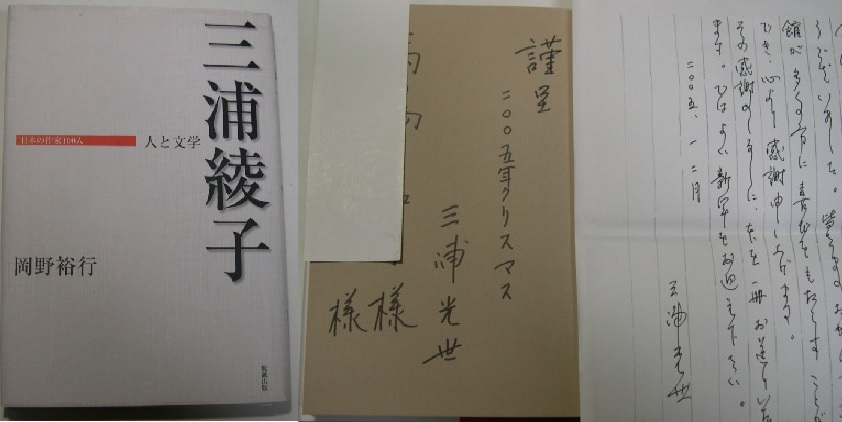 三浦綾子
人と文学
日本の作家100人
岡野裕行
勉誠出版
謹呈
二〇〇五年クリスマス
三浦光世
様
様
館が多くの方に喜びをもたらすことが
でき、心より感謝申し上げます。
その感謝のしるしに、本を一冊お送りいた
ます。ではよい新年をお迎え下さい。
二〇〇五、一二月
三浦光世